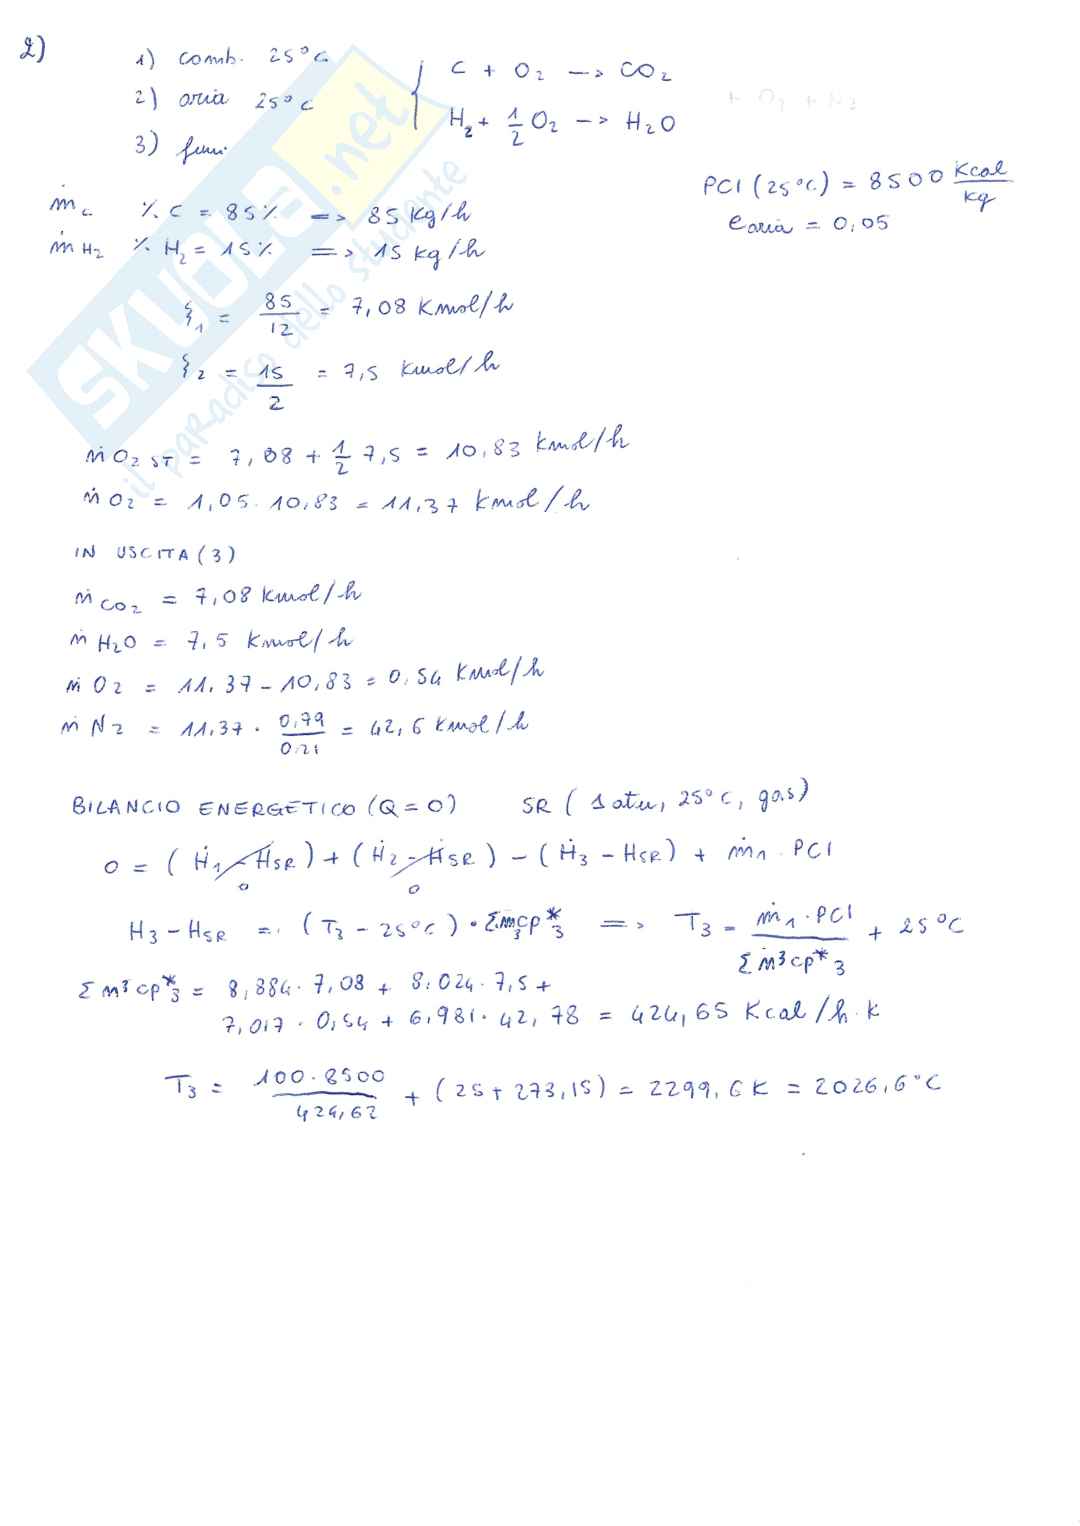 2)
1) comb. 25°C
2) aria 25°C
3) fumi
C + O2 -> CO2
H2 + 1/2 O2 -> H2O
+ O2 + N2
PCI (25°C) = 8500 Kcal/kg
e aria = 0,05
ṁc % C = 85% => 85 Kg/h
ṁH2 % H2 = 15% => 15 kg/h
ξ1 = 85/12 = 7,08 Kmol/h
ξ2 = 15/2 = 7,5 Kmol/h
ṅO2 ST = 7,08 + 1/2 7,5 = 10,83 Kmol/h
ṅO2 = 1,05 · 10,83 = 11,37 Kmol/h
IN USCITA (3)
ṅCO2 = 7,08 Kmol/h
ṅH2O = 7,5 Kmol/h
ṅO2 = 11,37 - 10,83 = 0,54 Kmol/h
ṅN2 = 11,37 · 0,79/0,21 = 42,6 Kmol/h
BILANCIO ENERGETICO (Q=0) SR (1 atm, 25°C, gas)
0 = (Ḣ1 - ḢSR) + (Ḣ2 - ḢSR) - (Ḣ3 - HSR) + ṁ1 · PCI
0 0
H3 - HSR = (T3 - 25°C) · Σṅ3cp*3 => T3 = ṁ1 · PCI / Σṅ3cp*3 + 25°C
Σn3cp*3 = 8,884 · 7,08 + 8,024 · 7,5 +
7,017 · 0,54 + 6,981 · 42,78 = 424,65 Kcal/h·K
T3 = 100·8500/424,62 + (25 + 273,15) = 2299,6 K = 2026,6°C
SKUOLA.net
il paradiso dello studente